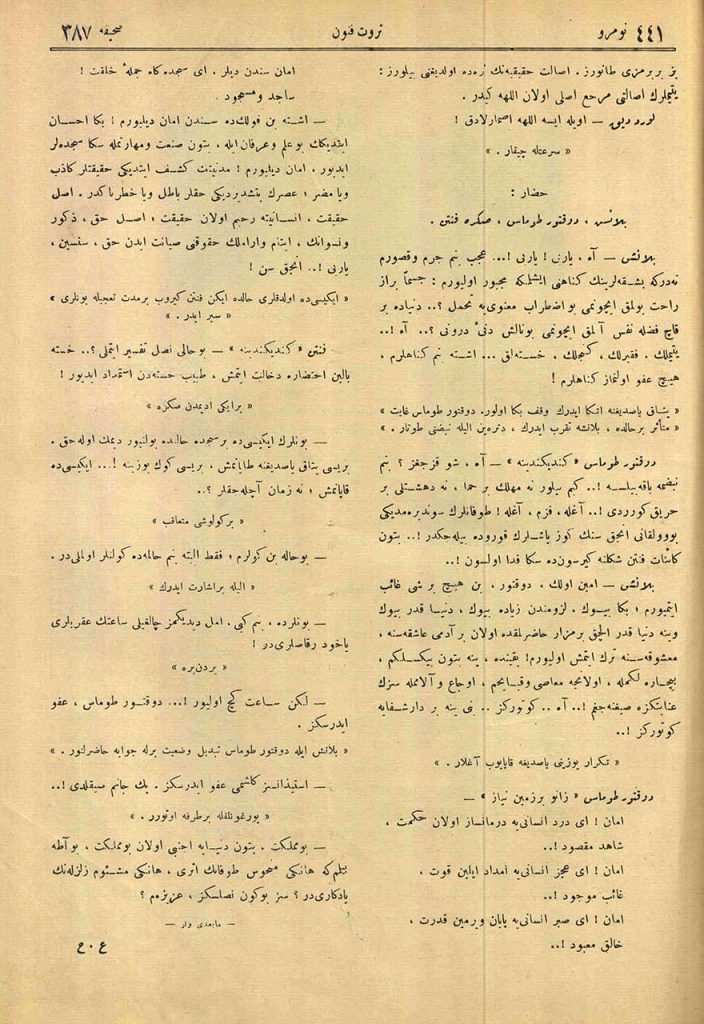 ٤٤١ نومرو
ثروت فنون
صحیفه ٣٨٧
بز بربرمزی طانورز . اصالت حقیقیه‌نك نره‌ده اولدیغنی بیلورز :
یتیملرك اصالتی مرجع اصلی اولان اللهه كیدر .
لورد ویق — اویله ایسه اللهه اصمارلادق !
« سرعتله چیقار . »
حضار :
بلانش ، دوقتور طوماس ، صكره فنتن .
بلانش — آه ، یاربی ! یاربی !... عجب بنم جرم وقصورم
نه‌در كه بشقه‌لرینك كناهنی ایشلمكه مجبور اولیورم : جسماً براز
راحت بولمق ایچونمی بو اضطراب معنوی‌یه تحمل ؟.. دنیاده بر
قاچ فضله نفس آلمق ایچونمی بونالش دنئ درونی ؟.. آه !..
یتیملك ، فقیرلك ، كنجلك ، خسته‌لق ... اشته بنم كناهلرم ،
هیچ عفو اولنماز كناهلرم !
« یتاق یاصدیغنه اتكا ایدرك وقف بكا اولور. دوقتور طوماس غایت »
« متأثر برحالده ، بلانشه تقرب ایدرك ، دتره‌ین الیله نبضنی طوتار . »
دوقتور طوماس « كندیكندینه » — آه ، شو قزجغز ؟ بنم
نبضمه باقه‌بیلسه !.. كیم بیلور نه مهلك بر حما ، نه دهشتلی بر
حریق كوردی !.. آغله ، قزم ، آغله ! طوفانلرك سوندیره‌مدیكی
بو وولقانی انجق سنك كوز یاشلرك قوروده بیله‌جكدر !.. بتون
كائنات فنتن شكلنه كیرسون‌ده سكا فدا اولسون !..
بلانش — امین اولك ، دوقتور ، بن هیچ بر شی غائب
ایتمیورم ؛ بكا بیوك ، لزومندن زیاده بیوك ، دنیا قدر بیوك
وینه دنیا قدر آلچق برمزار حاضرلمقده اولان بر آدمی عاشقه‌سنه ،
معشوقه‌سنه ترك ایتمش اولیورم! یقینده ، ینه بتون بیكسلكم ،
بیچاره‌لكمله ، اولانجه معاصی وقبایحم ، اوجاع وآلاممله سزك
عنایتكزه صیغنه‌جغم !.. آه .. كوتوركز .. بنی ینه بر دارشفایه
كوتوركز !..
« تكرار یوزینی یاصدیغه قاپایوب آغلار . »
دوقتور طوماس « زانو برزمین نیاز » —
امان ! ای درد انسانی‌یه درمانساز اولان حكمت ،
شاهد مقصود !..
امان ! ای عجز انسانی‌یه امداد ایلین قوت ،
غائب موجود !..
امان ! ای صبر انسانی‌یه پایان ویرمین قدرت ،
خالق معبود !..
امان سندن دیلر ، ای سجده‌كاه جملۀ خلقت !
ساجد ومسجود .
— اشته بن قولك‌ده سندن امان دیلیورم ! بكا احسان
ایتدیكك بو علم وعرفان ایله ، بتون صنعت ومهارتمله سكا سجده‌لر
ایدیور ، امان دیلیورم ! مدنیتك كشف ایتدیكی حقیقتلر كاذب
ویا مضر ؛ عصرك یتشدیردیكی حقلر باطل ویا خطرناكدر . اصل
حقیقت ، انسانیته رحیم اولان حقیقت ؛ اصل حق ، ذكور
ونسوانك ، ایتام واراملك حقوقنی صیانت ایدن حق ، سنسین ،
یاربی !.. انجق سن !
« ایكیسی‌ده اولدقلری حالده ایكن فنتن كیروب برمدت تعجبله بونلری »
« سیر ایدر . »
فنتن « كندیكندینه » — بو حالی نصل تفسیر ایتملی ؟.. خسته
بالین احتضاره دخالت ایتمش ، طبیب خسته‌دن استمداد ایدیور !
« برایكی ادیمدن صكره »
— بونلرك ایكیسی‌ده بر سجده حالنده بولنیور دیمك اوله‌جق .
بریسی یتاق یاصدیغنه طایانمش ، بریسی كوك یوزینه !... ایكیسی‌ده
قاپانمش ؛ نه زمان آچله‌جقلر ؟..
« بر كولوشی متعاقب »
— بو حاله بن كولرم ؛ فقط البته بنم حالمه‌ده كولنلر اولملی‌در .
« الیله بر اشارت ایدرك »
— بونلرده ، بنم كبی ، امل دیدیكمز چالغیلی ساعتك عقربلری
یاخود رقاصلری‌در !
« بردن‌بره »
— لكن ساعت كچ اولیور !... دوقتور طوماس ، عفو
ایدرسكز .
« بلانش ایله دوقتور طوماس تبدیل وضعیت برله جوابه حاضرلنور . »
— استیذانسز كلشمی عفو ایدرسكز . پك جانم صیقلدی !..
« یورغونلقله بر طرفه اوتورر . »
— بو مملكت ، بتون دنیایه اجنبی اولان بو مملكت ، بو آطه
بیلم كه هانكی منحوس طوفانك اثری ، هانكی مشئوم زلزله‌نك
یادكاری‌در ؟ سز بوكون نصلسكز ، عزیزه‌م ؟
— مابعدی وار —
ع ٠ ح